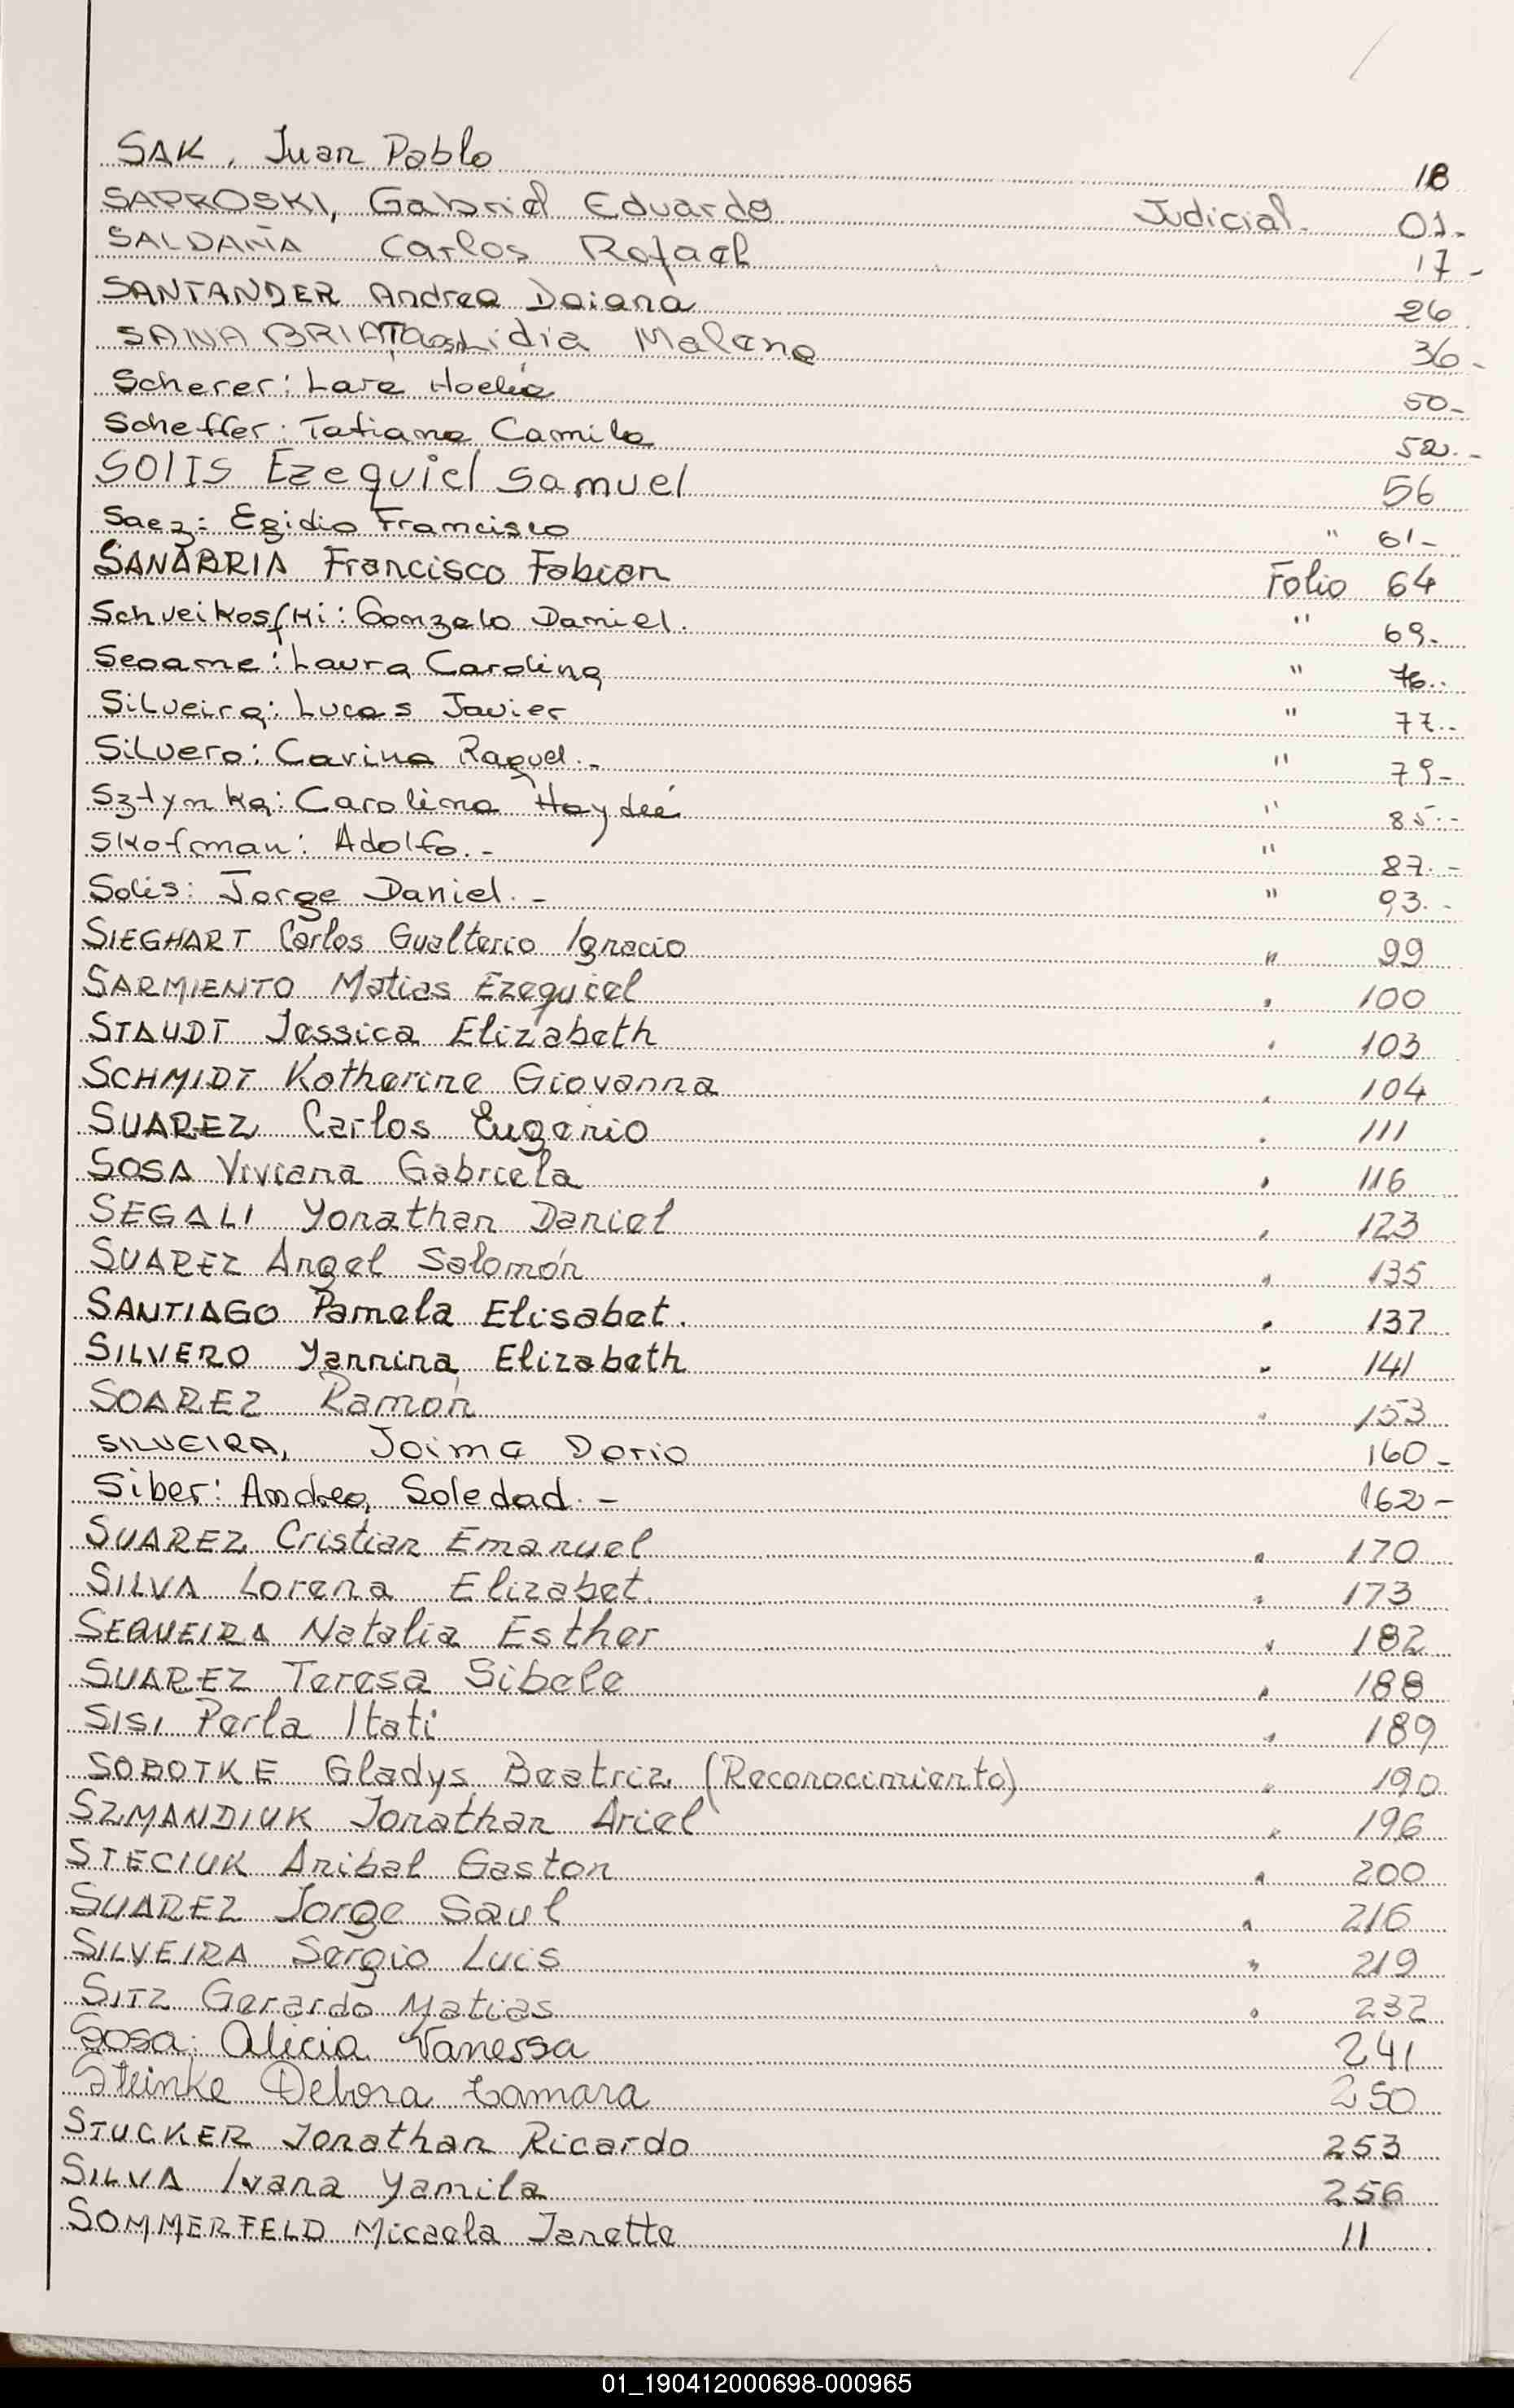 SAK, Juan Pablo 18
SAPROSKI, Gabriel Eduardo Judicial. 01.-
SALDAÑA Carlos Rafael 17-
SANTANDER Andrea Daiana 26
SANABRIA Lidia Malena 36-
Scherer: Lara 50-
Scheffer: Tatiana Camila 52.-
SOLIS Ezequiel Samuel 56
Saez: Egidio Francisco " 61-
SANABRIA Francisco Fabian Folio 64
Schveikosfki: Gonzalo Daniel. " 69-
Seoane: Laura Carolina " 76..
Silveira: Lucas Javier " 77..
Silvero: Carina Raquel.- " 79-
Sztynka: Carolina Haydeé " 85.-
Skofman: Adolfo.- " 87.-
Solis: Jorge Daniel.- " 93.-
SIEGHART Carlos Gualterio Ignacio " 99
SARMIENTO Matias Ezequiel " 100
STAUDT Jessica Elizabeth " 103
SCHMIDT Katherine Giovanna " 104
SUAREZ Carlos Eugenio " 111
SOSA Viviana Gabriela " 116
SEGALI Yonathan Daniel " 123
SUAREZ Angel Salomón " 135
SANTIAGO Pamela Elisabet. " 137
SILVERO Yannina Elizabeth " 141
SOAREZ Ramón " 153
SILVEIRA, Joima Dorio 160-
Siber: Andrea Soledad.- 162-
SUAREZ Cristian Emanuel " 170
SILVA Lorena Elizabet. " 173
SEQUEIRA Natalia Esther " 182
SUAREZ Teresa Sibele " 188
SISI Perla Itati " 189
SOBOTKE Gladys Beatriz (Reconocimiento) " 190
SZMANDIUK Jonathan Ariel " 196
STECIUK Anibal Gaston " 200
SUAREZ Jorge Saul " 216
SILVEIRA Sergio Luis " 219
SITZ Gerardo Matias " 232
Sosa: Alicia Vanessa 241
Steinke Debora Tamara 250
STUCKER Jonathan Ricardo 253
SILVA Ivana Yamila 256
SOMMERFELD Micaela Janette 11
01_190412000698-000965